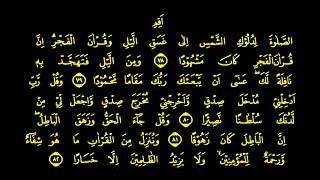 أَقِمِ
الصَّلَوٰةَ لِدُلُوكِ الشَّمْسِ إِلَىٰ غَسَقِ الَّيْلِ وَقُرْءَانَ الْفَجْرِ إِنَّ
قُرْءَانَ الْفَجْرِ كَانَ مَشْهُودًا ٧٨ وَمِنَ الَّيْلِ فَتَهَجَّدْ بِهِ
نَافِلَةً لَّكَ عَسَىٰ أَن يَبْعَثَكَ رَبُّكَ مَقَامًا مَّحْمُودًا ٧٩ وَقُل رَّبِّ
أَدْخِلْنِي مُدْخَلَ صِدْقٍ وَأَخْرِجْنِي مُخْرَجَ صِدْقٍ وَاجْعَل لِّي مِن
لَّدُنكَ سُلْطَٰنًا نَّصِيرًا ٨٠ وَقُلْ جَآءَ الْحَقُّ وَزَهَقَ الْبَٰطِلُ
إِنَّ الْبَٰطِلَ كَانَ زَهُوقًا ٨١ وَنُنَزِّلُ مِنَ الْقُرْءَانِ مَا هُوَ شِفَآءٌ
وَرَحْمَةٌ لِّلْمُؤْمِنِينَ وَلَا يَزِيدُ الظَّٰلِمِينَ إِلَّا خَسَارًا ٨٢